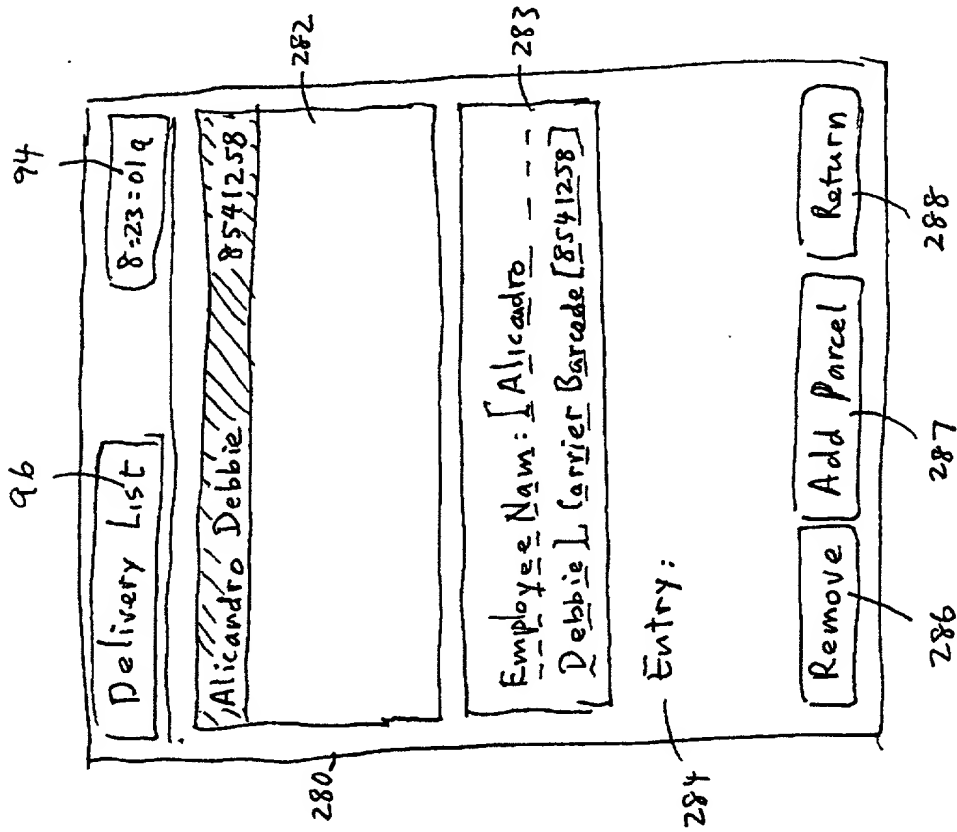 96
94
Delivery List
8:23:01a
Alicandro Debbie 8541258
282
Employee Nam: [Alicadro
Debbie] Carrier Barcode [8541258]
283
280
284
Entry:
Remove
Add Parcel
Return
286
287
288